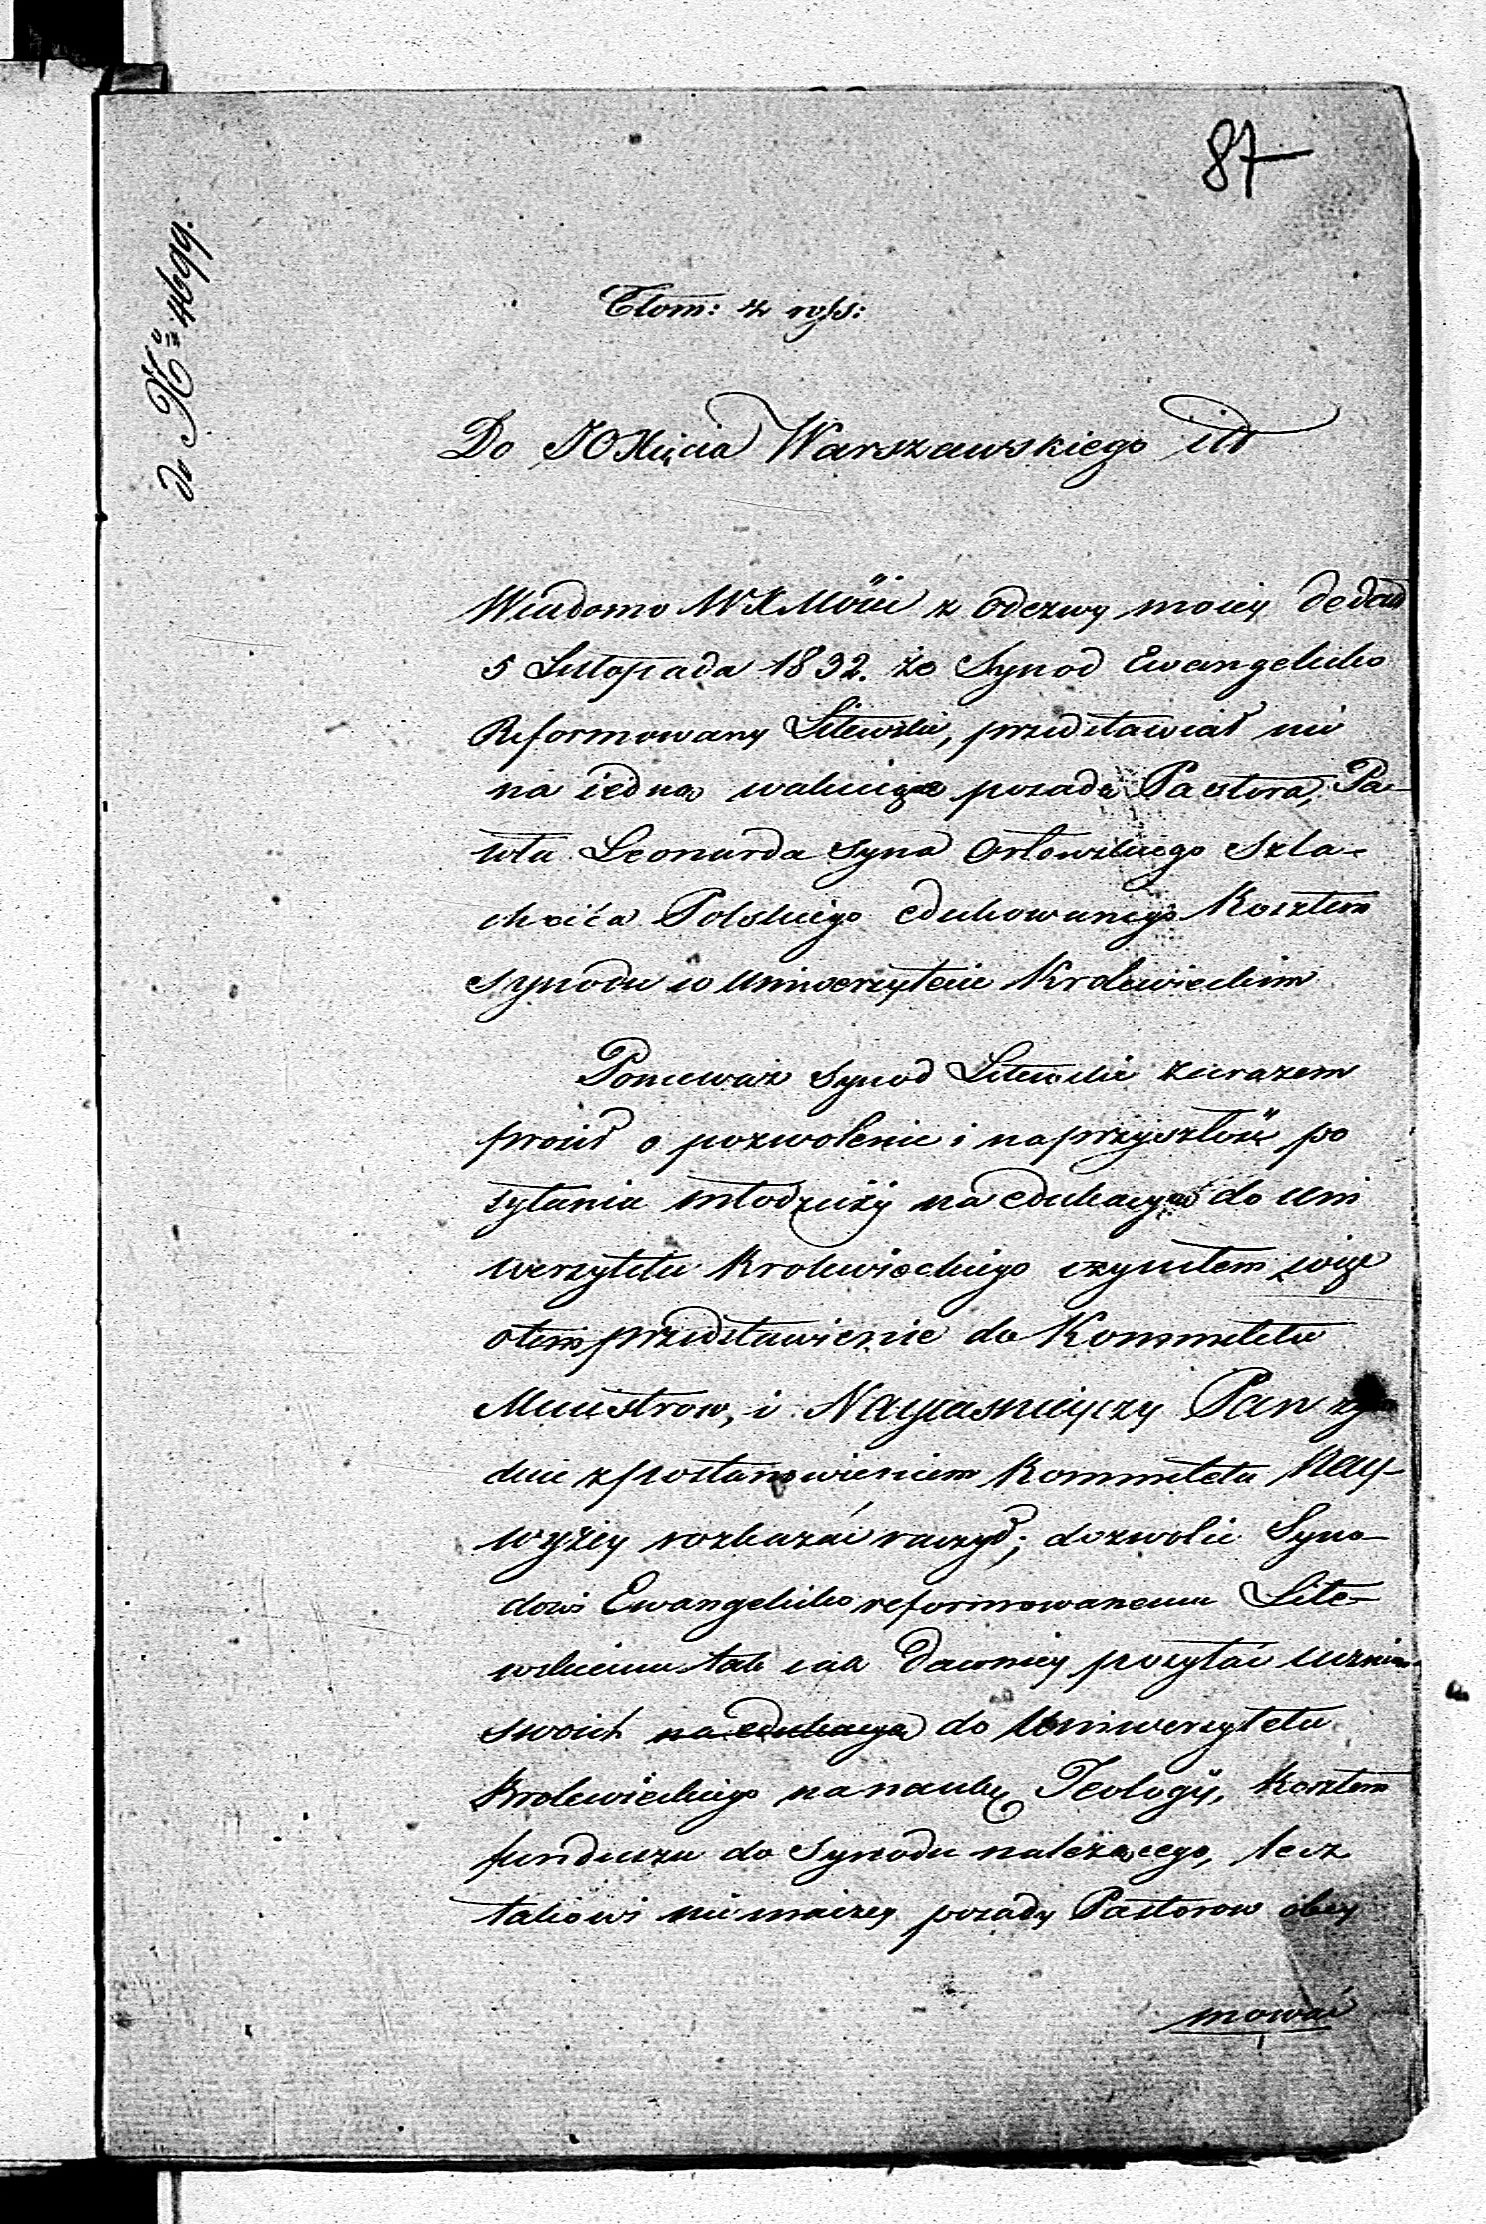 87
do N<sup>o</sup> 4699.
Tłom: z ros:
Do JO Xięcia Warszawskiego itd
Wiadomo WXMości z odezwy moiey de dato
5 Listopada 1832. że Synod Ewangeliko
Reformowany Litewski, przedstawiał mi
na iedną wakuiącą posadę Pastora, Pa-
wła Leonarda syna Orłowskiego Szla-
chcica Polskiego edukowanego Kosztem
Synodu w Uniwersytecie Krolewieckim
Ponieważ Synod Litewski zarazem
prosił o pozwolenie i na przyszłość po
syłania młodzieży na edukacyą do Uni
wersytetu Krolewieckiego czyniłem więc
o tem przedstawienie do Kommitetu
Ministrow, i Nayiasnieyszy Pan zgo
dnie z postanowieniem Kommitetu Nay-
wyżey rozkazać raczył; dozwolić Syno-
dowi Ewangeliko reformowanemu Lite-
wskiemu tak iak dawniey posyłać uczniow
swoich na edukacyą do Uniwersytetu
Krolewieckiego na naukę Teologii, Kosztem
funduszu do Synodu należącego, lecz
takowi nie inaczey posady Pastorow obey
mować